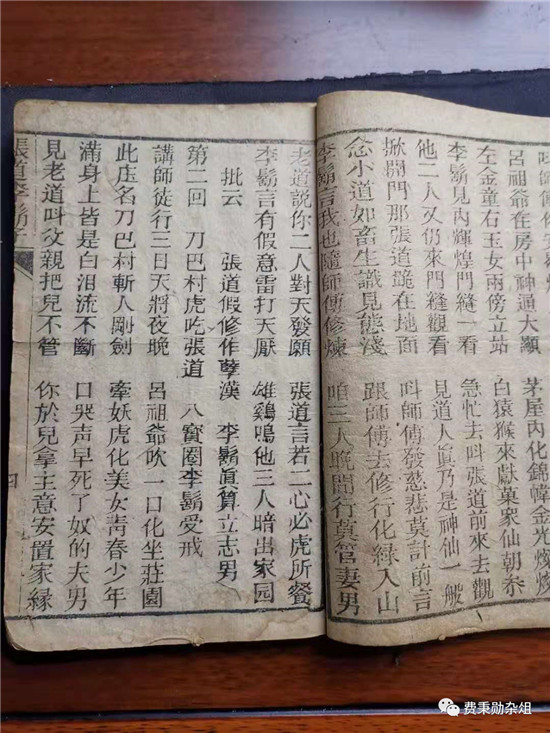 呂祖爺在房中神通大顯　茅屋內化錦幃金光燦
左金童右玉女兩傍立站　白猿猴來獻菓眾仙朝叅
李鬍見內輝煌門縫一看　急忙去叫張道前來去觀
他二人又仍來門縫觀看　見道人真乃是神仙一般
掀開門那張道跪在地面　呌師傅發慈悲莫計前言
念小道如畜生識見態淺　跟師傅去修行化緣入山
李鬍言我也隨師傅修煉　咱三人晚間行莫管妻男
老道說你二人對天發願　張道言若二心必虎所餐
李鬍言有假意雷打天厭　雄鷄鳴他三人暗出家园
批云　張道假修作孽漢　李鬍眞算立志男
第二回　刀巴村虎吃張道　八寶圈李鬍受戒
講師徒行三日天將夜晚　呂祖爺吹一口化坐莊園
此庄名刀巴村斬人剛劍　牽妖虎化美女靑春少年
滿身上皆是白泪流不斷　口哭声早死了奴的夫男
見老道呌父親把兒不管　你於兒拿主意安置家緣
張道李鬍子
四
费秉勋杂俎